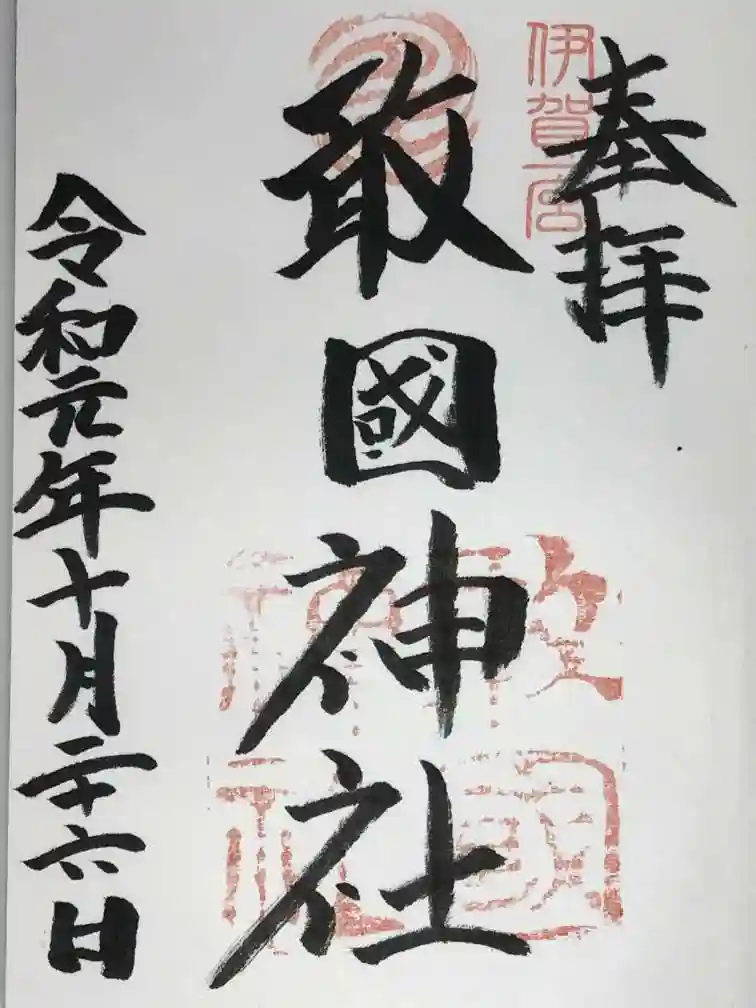 奉拝
伊賀一宮
敢國神社
敢國神社
令和元年十月二十六日